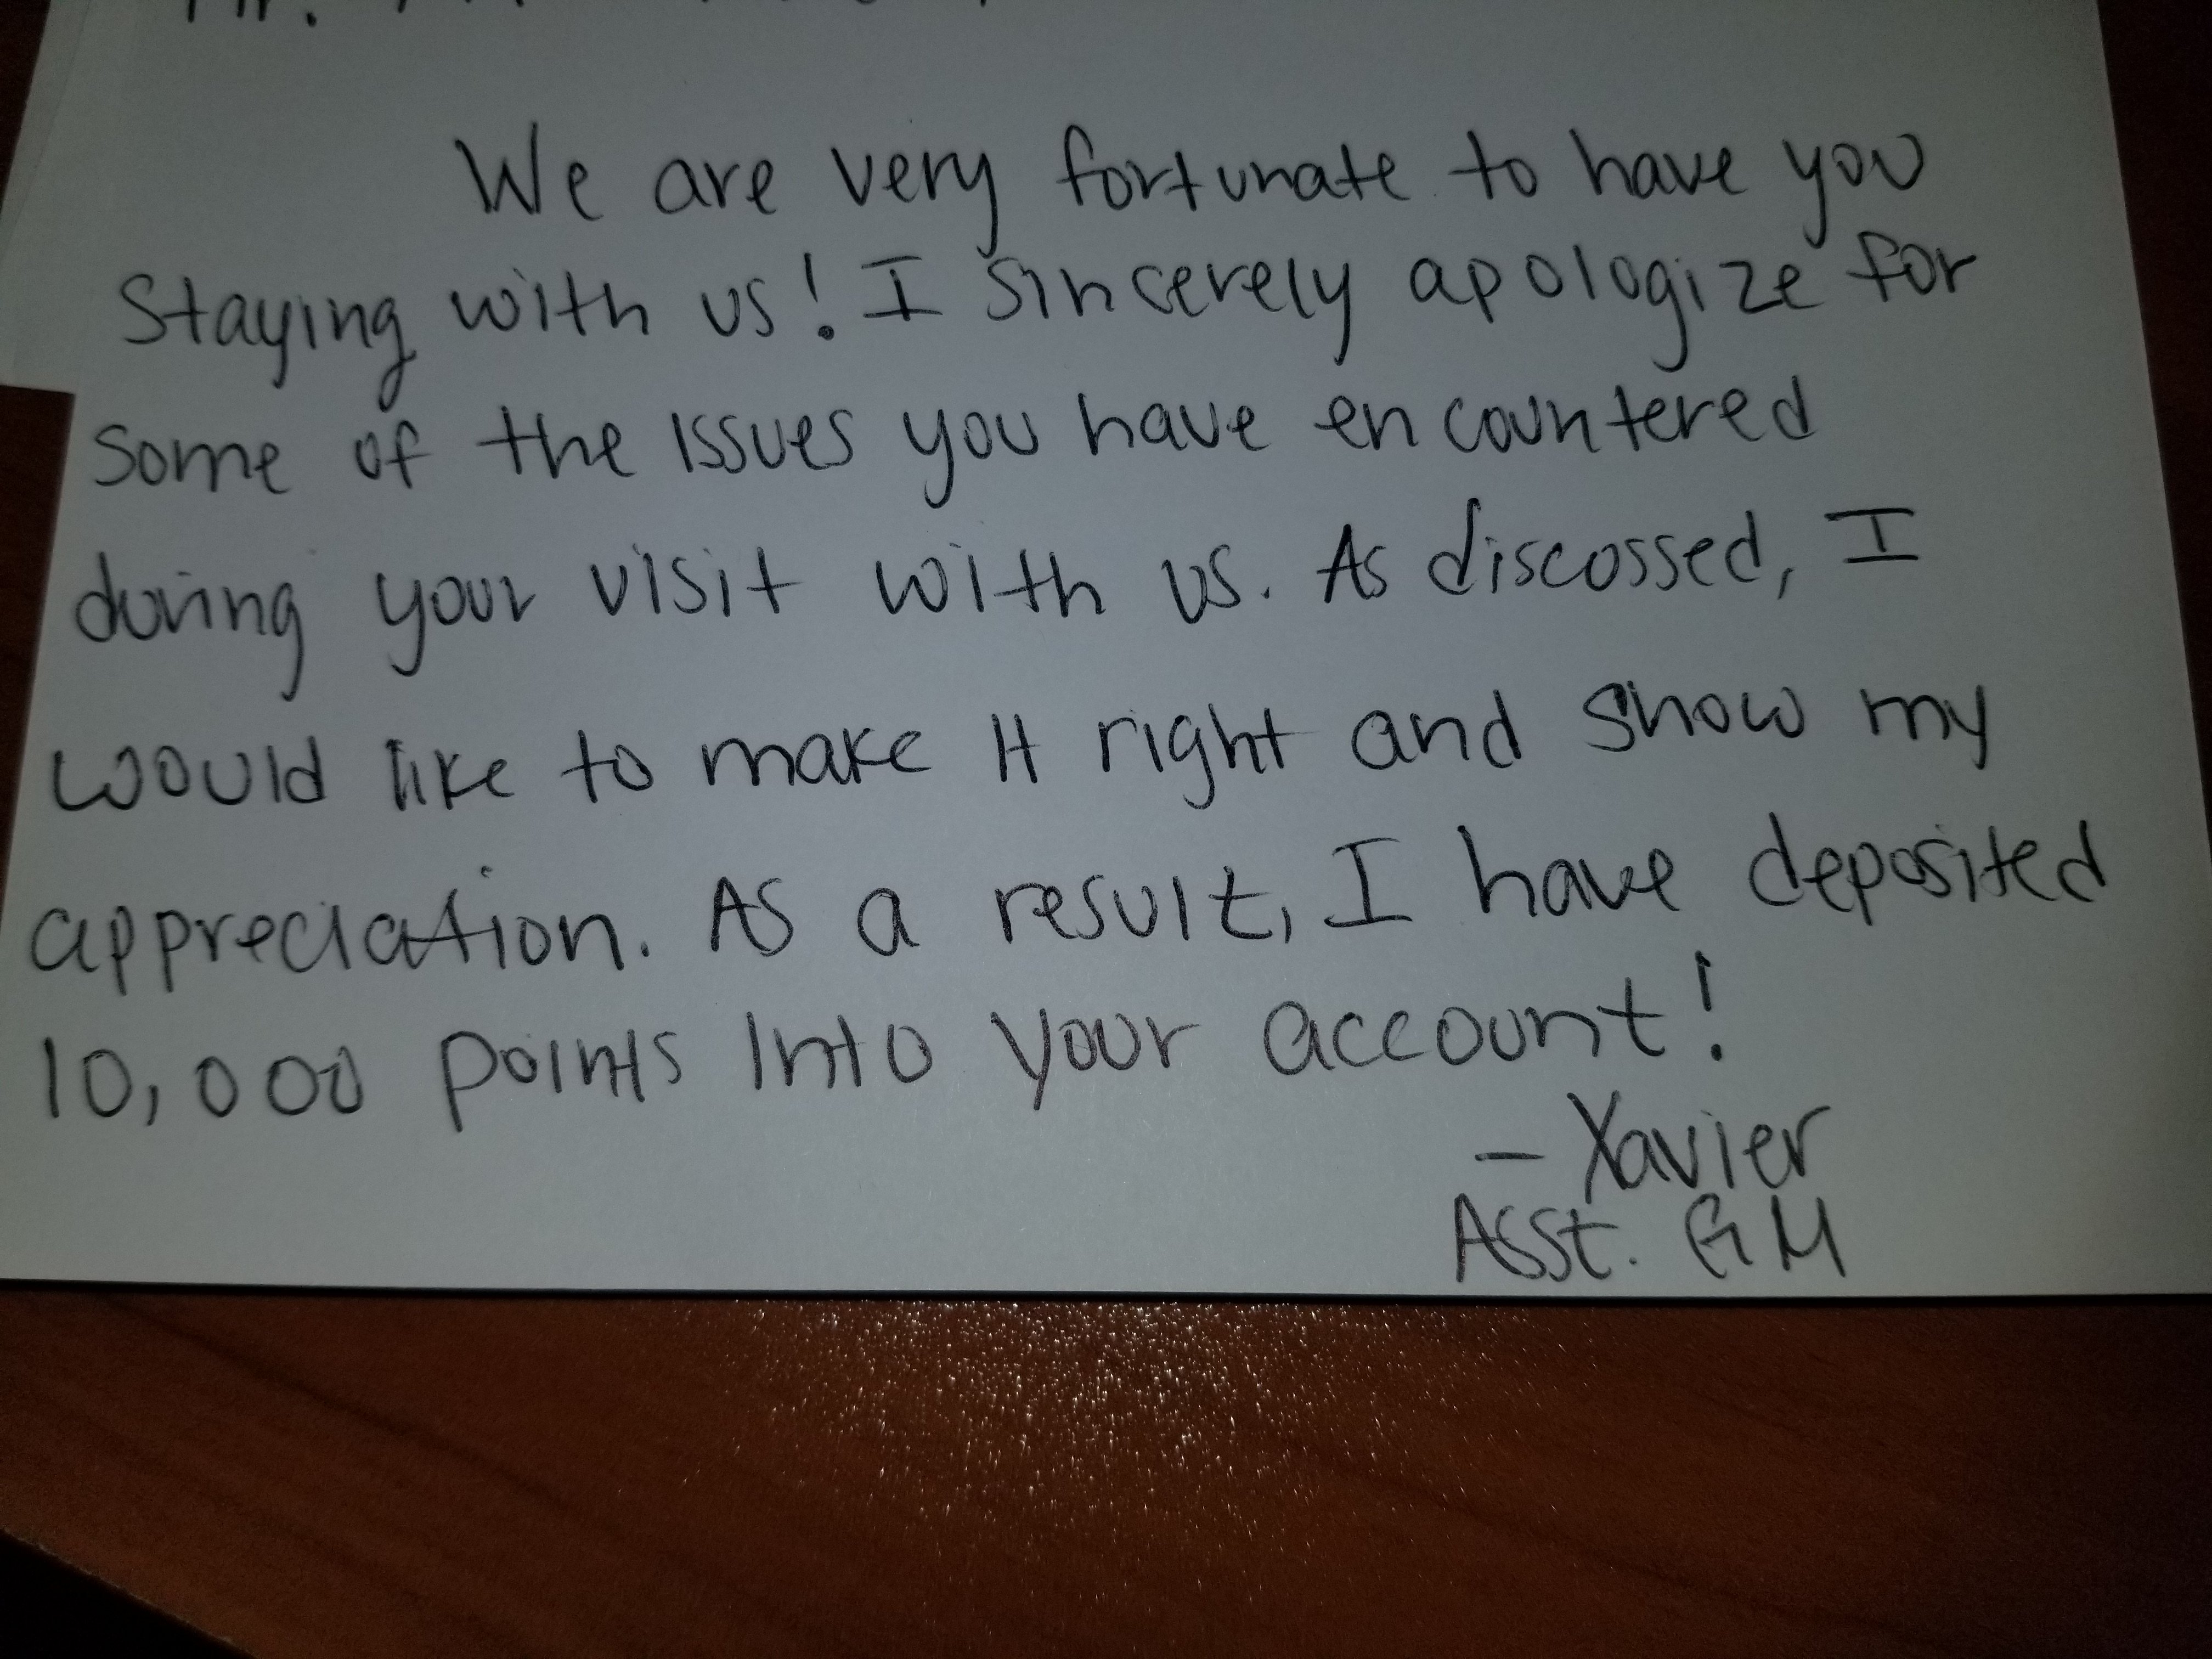 We are very fortunate to have you
Staying with us! I sincerely apologize for
some of the issues you have encountered
during your visit with us. As discossed, I
would like to make it right and show my
appreciation. As a result, I have deposited
10,000 points into your account!
- Xavier
Asst. GM